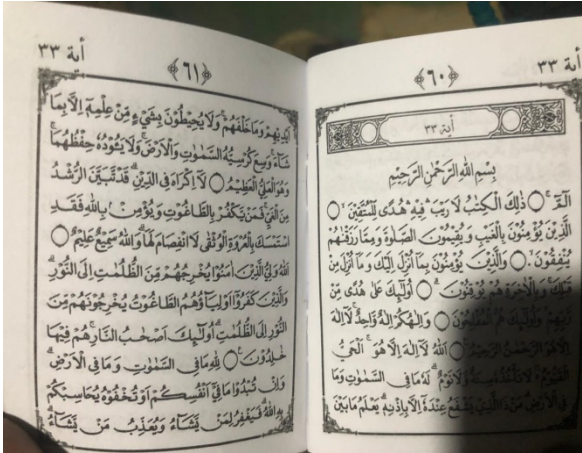 آية ٣٣
﴿٦٠﴾
آية ٣٣
بِسْمِ اللهِ الرَّحْمٰنِ الرَّحِيْمِ
الٓمّٓ ۚ ذٰلِكَ الْكِتٰبُ لَا رَيْبَ ۛ فِيْهِ ۛ هُدًى لِّلْمُتَّقِيْنَ ۙ
الَّذِيْنَ يُؤْمِنُوْنَ بِالْغَيْبِ وَيُقِيْمُوْنَ الصَّلٰوةَ وَمِمَّا رَزَقْنٰهُمْ
يُنْفِقُوْنَ ۙ وَالَّذِيْنَ يُؤْمِنُوْنَ بِمَآ اُنْزِلَ اِلَيْكَ وَمَآ اُنْزِلَ مِنْ
قَبْلِكَ ۚ وَبِالْاٰخِرَةِ هُمْ يُوْقِنُوْنَ ۗ اُولٰٓئِكَ عَلٰى هُدًى مِّنْ
رَّبِّهِمْ ۗ وَاُولٰٓئِكَ هُمُ الْمُفْلِحُوْنَ وَاِلٰهُكُمْ اِلٰهٌ وَّاحِدٌ لَآ اِلٰهَ
اِلَّا هُوَ الرَّحْمٰنُ الرَّحِيْمُ اَللهُ لَآ اِلٰهَ اِلَّا هُوَ ۚ اَلْحَيُّ
الْقَيُّوْمُ ۚ لَا تَأْخُذُهٗ سِنَةٌ وَّلَا نَوْمٌ ۗ لَهٗ مَا فِى السَّمٰوٰتِ وَمَا
فِى الْاَرْضِ ۗ مَنْ ذَا الَّذِيْ يَشْفَعُ عِنْدَهٗٓ اِلَّا بِاِذْنِهٖ ۗ يَعْلَمُ مَا بَيْنَ
آية ٣٣
﴿٦١﴾
اَيْدِيْهِمْ وَمَا خَلْفَهُمْ ۚ وَلَا يُحِيْطُوْنَ بِشَيْءٍ مِّنْ عِلْمِهٖٓ اِلَّا بِمَا
شَآءَ ۚ وَسِعَ كُرْسِيُّهُ السَّمٰوٰتِ وَالْاَرْضَ ۚ وَلَا يَـُٔوْدُهٗ حِفْظُهُمَا ۚ
وَهُوَ الْعَلِيُّ الْعَظِيْمُ لَآ اِكْرَاهَ فِى الدِّيْنِ ۗ قَدْ تَّبَيَّنَ الرُّشْدُ
مِنَ الْغَيِّ ۚ فَمَنْ يَّكْفُرْ بِالطَّاغُوْتِ وَيُؤْمِنْۢ بِاللهِ فَقَدِ
اسْتَمْسَكَ بِالْعُرْوَةِ الْوُثْقٰى لَا انْفِصَامَ لَهَا ۗ وَاللهُ سَمِيْعٌ عَلِيْمٌ
اَللهُ وَلِيُّ الَّذِيْنَ اٰمَنُوْا يُخْرِجُهُمْ مِّنَ الظُّلُمٰتِ اِلَى النُّوْرِ ۗ
وَالَّذِيْنَ كَفَرُوْٓا اَوْلِيَآؤُهُمُ الطَّاغُوْتُ يُخْرِجُوْنَهُمْ مِّنَ
النُّوْرِ اِلَى الظُّلُمٰتِ ۗ اُولٰٓئِكَ اَصْحٰبُ النَّارِ ۚ هُمْ فِيْهَا
خٰلِدُوْنَ لِلهِ مَا فِى السَّمٰوٰتِ وَمَا فِى الْاَرْضِ ۗ
وَاِنْ تُبْدُوْا مَا فِيْٓ اَنْفُسِكُمْ اَوْ تُخْفُوْهُ يُحَاسِبْكُمْ
بِهِ اللهُ ۗ فَيَغْفِرُ لِمَنْ يَّشَآءُ وَيُعَذِّبُ مَنْ يَّشَآءُ ۗ